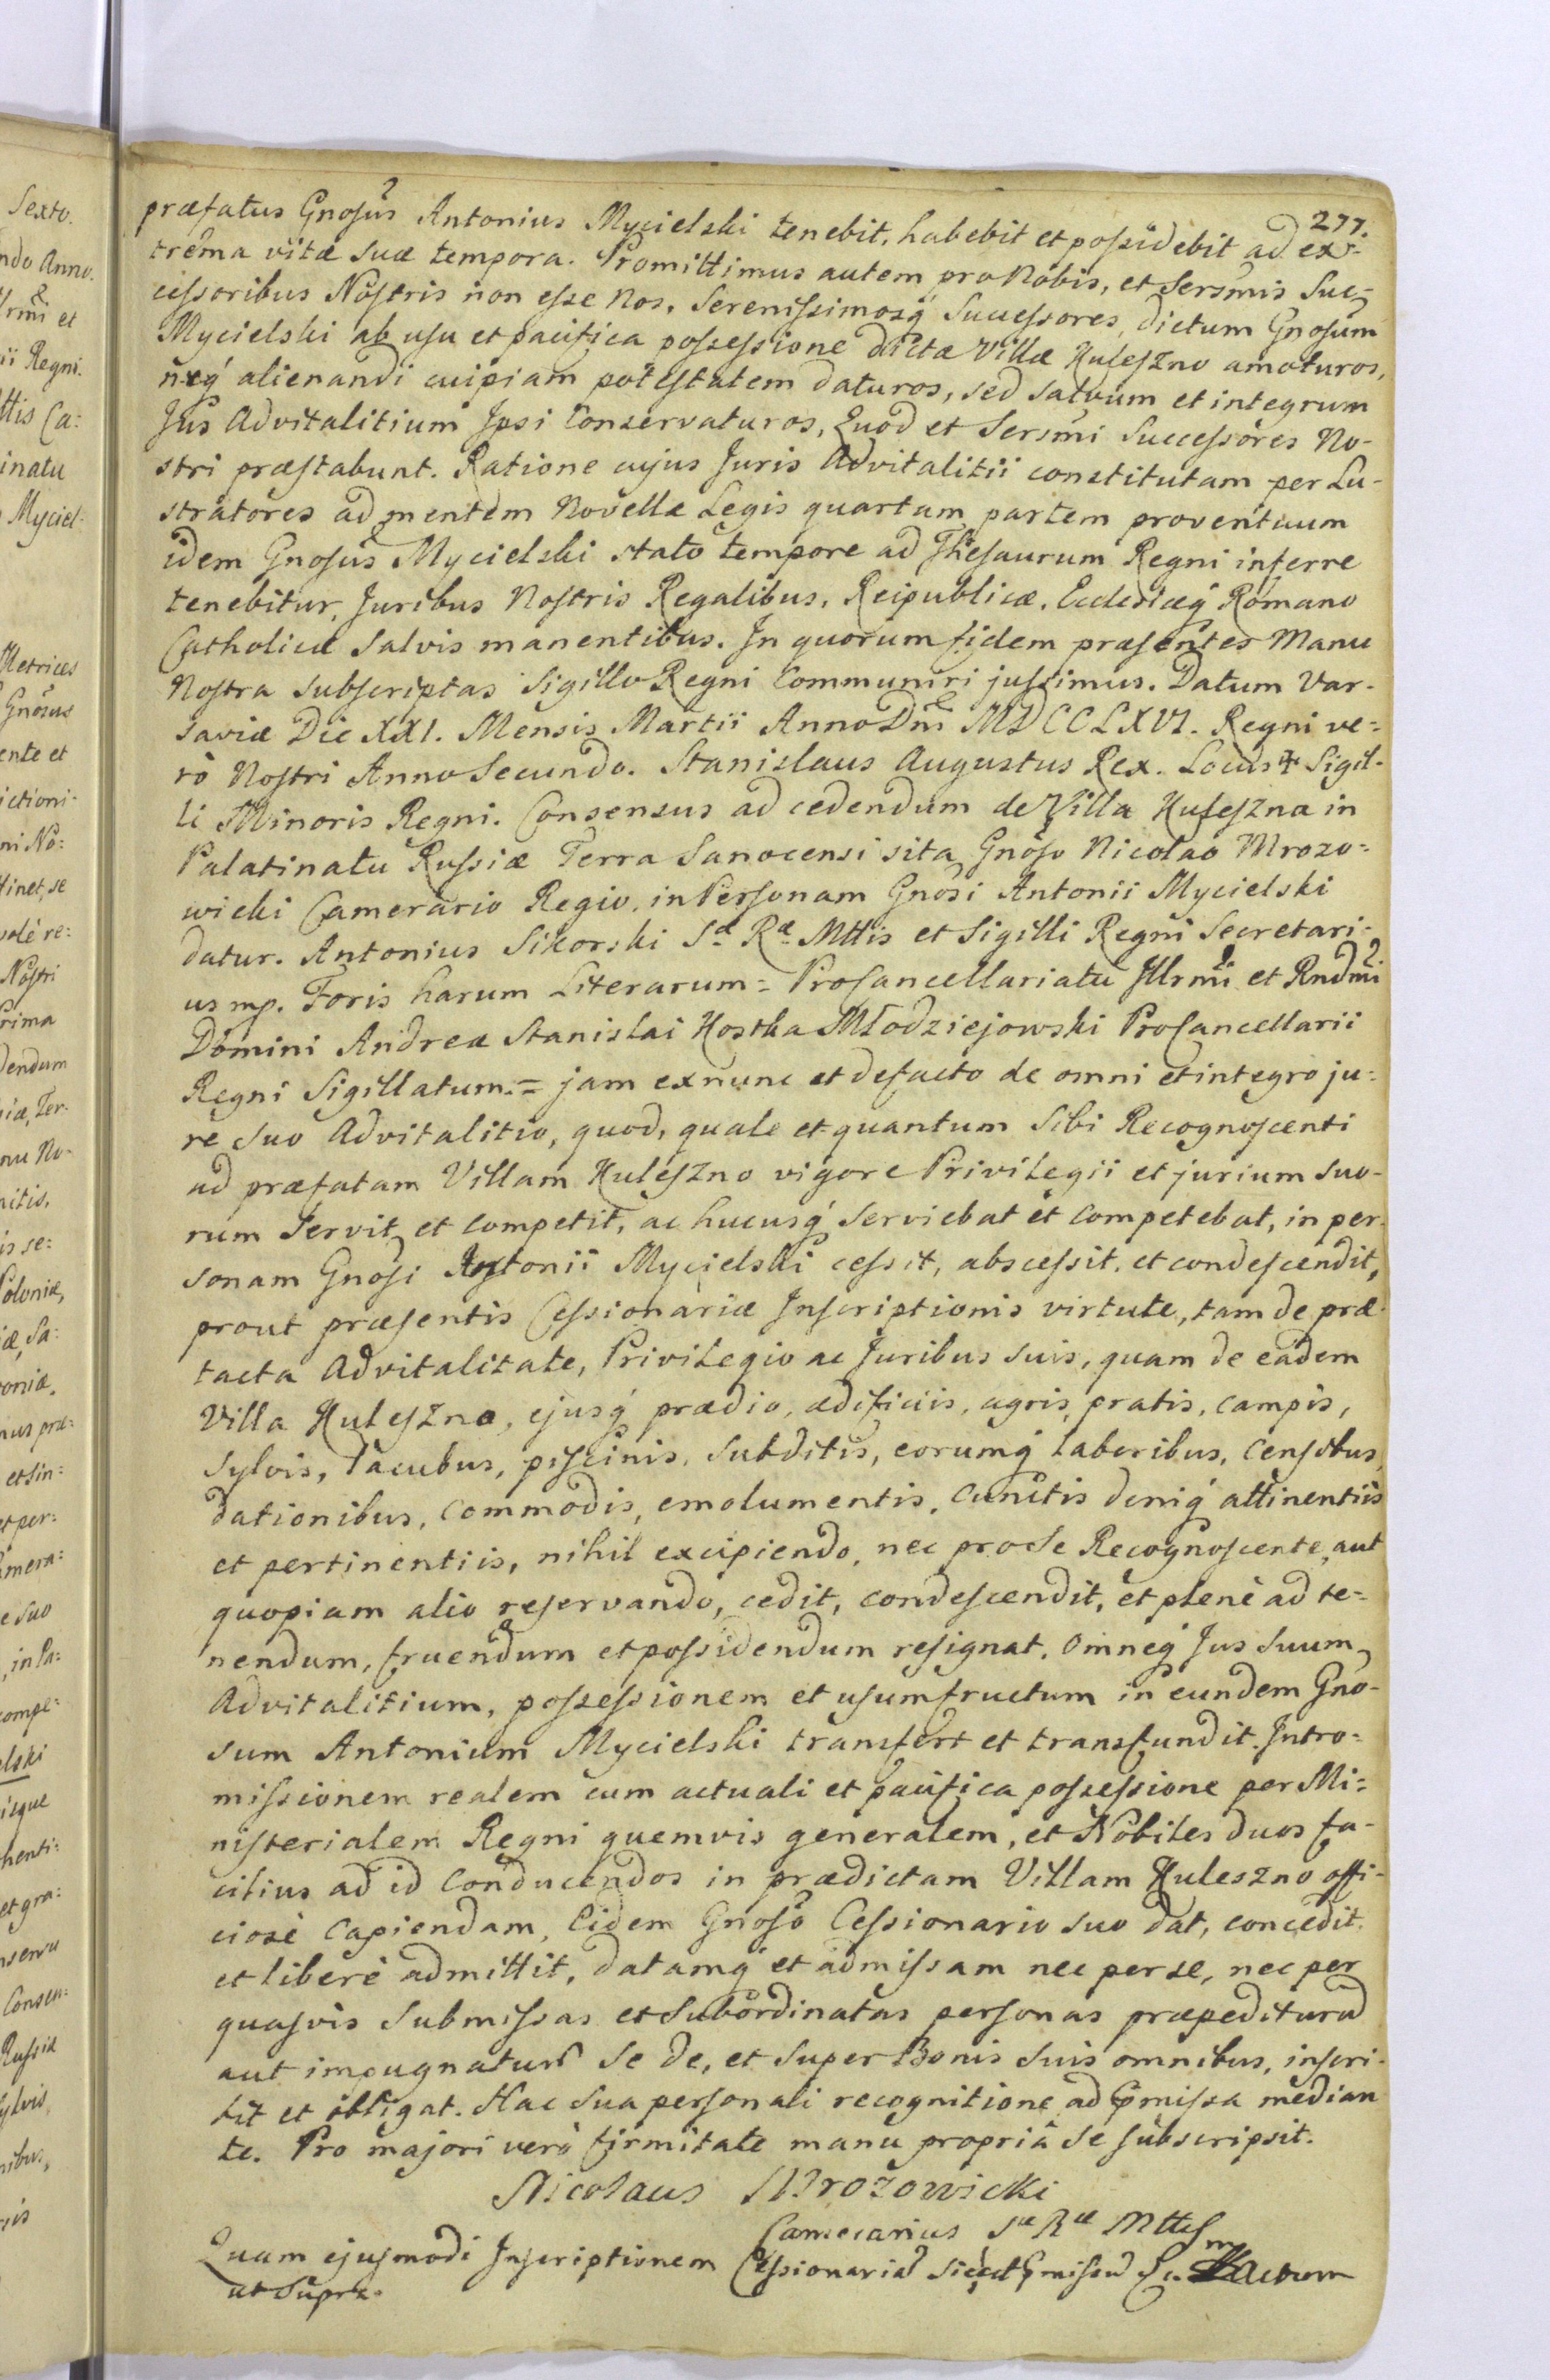 277.
præfatus Gnosus Antonius Mycielski tenebit, habebit et possidebit ad ex-
trema vitæ suæ tempora. Promittimus autem pro Nobis, et Sersmis Suc-
cessoribus Nostris non esse Nos, Serenissimosq́ Successores, dictum Gnosum
Mycielski ab usu et pacifica possessione dictæ Villæ Huleszno amoturos,
neq́ alienandi cuipiam potestatem daturos, sed salvum et integrum
Jus Advitalitium Ipsi Conservaturos, Quod et Sersmi Successores No-
stri præstabunt. Ratione cujus Juris Advitalitii constitutam per Lu-
stratores ad mentem Novellæ Legis quartam partem proventuum
idem Gnosus Mycielski stato tempore ad Thesaurum Regni inferre
tenebitur, Juribus Nostris Regalibus, Reipublicæ, Ecclesiæq́ Romano
Catholicæ Salvis manentibus. In quorum fidem præsentes Manu
Nostra subscriptas Sigillo Regni Communiri jussimus. Datum Var-
saviæ Die XXI. Mensis Martii Anno Dni MDCCLXVI. Regni ve=
rò Nostri Anno Secundo. Stanislaus Augustus Rex. Locus ✠ Sigil-
li Minoris Regni. Consensus ad cedendum de Villa Huleszna in
Palatinatu Russiæ Terra Sanocensi sita Gnoso Nicolao Mrozo=
wicki Camerario Regio, in Personam Gnosi Antonii Mycielski
datur. Antonius Sikorski Sæ Ræ Mttis et Sigilli Regni Secretari-
us mp. Foris harum Literarum = Procancellariatu Illrmi et Rndmi
Domini Andreæ Stanislai Kostka Młodziejowski Procancellarii
Regni Sigillatum. = jam ex nunc et de facto de omni et integro ju=
re suo Advitalitio, quod, quale et quantum Sibi Recognoscenti
ad præfatam Villam Huleszno vigore Privilegii et jurium suo-
rum Servit et competit, ac hucusq́ serviebat et competebat, in per-
sonam Gnosi Antonii Mycielski cessit, abscessit, et condescendit,
prout præsentis Cessionariæ Inscriptionis virtute, tam de præ-
tacta Advitalitate, Privilegio ac Juribus suis, quam de eadem
Villa Huleszno, ejusq́ prædio, ædificiis, agris, pratis, campis,
Sylvis, Lacubus, piscinis, Subditis, eorumq́ laboribus, Censibus,
dationibus, Commodis, emolumentis, Cunctis deniq́ attinentiis
et pertinentiis, nihil excipiendo, nec pro Se Recognoscente, aut
quopiam alio reservando, cedit, condescendit, et plenè ad te=
nendum, fruendum et possidendum resignat, Omneq́ Jus Suum
Advitalitium, possessionem et usumfructum in eundem Gno-
sum Antonium Mycielski transfert et transfundit. Intro=
missionem realem cum actuali et pacifica possessione per Mi=
nisterialem Regni quemvis generalem, et Nobiles duos fa-
cilius ad id Conducendos in prædictam Villam Huleszno offi-
ciosè Capiendam, Eidem Gnoso Cessionario suo dat, concedit,
et liberè admittit, datamq́ et admissam nec per se, nec per
quasvis Submissas et Subordinatas personas præpediturū
aut impugnaturū Se de, et super Bonis suis omnibus, inscri-
bit et obligat. Hac Sua personali recognitione ad præmissa median
te. Pro majori verò firmitate manu propriâ se subscripsit.
Nicolaus Mrozowicki
Camerarius Sæ Ræ Mttis
mp
Quam ejusmodi Inscriptionem Cessionariā Actum
ut Supra.